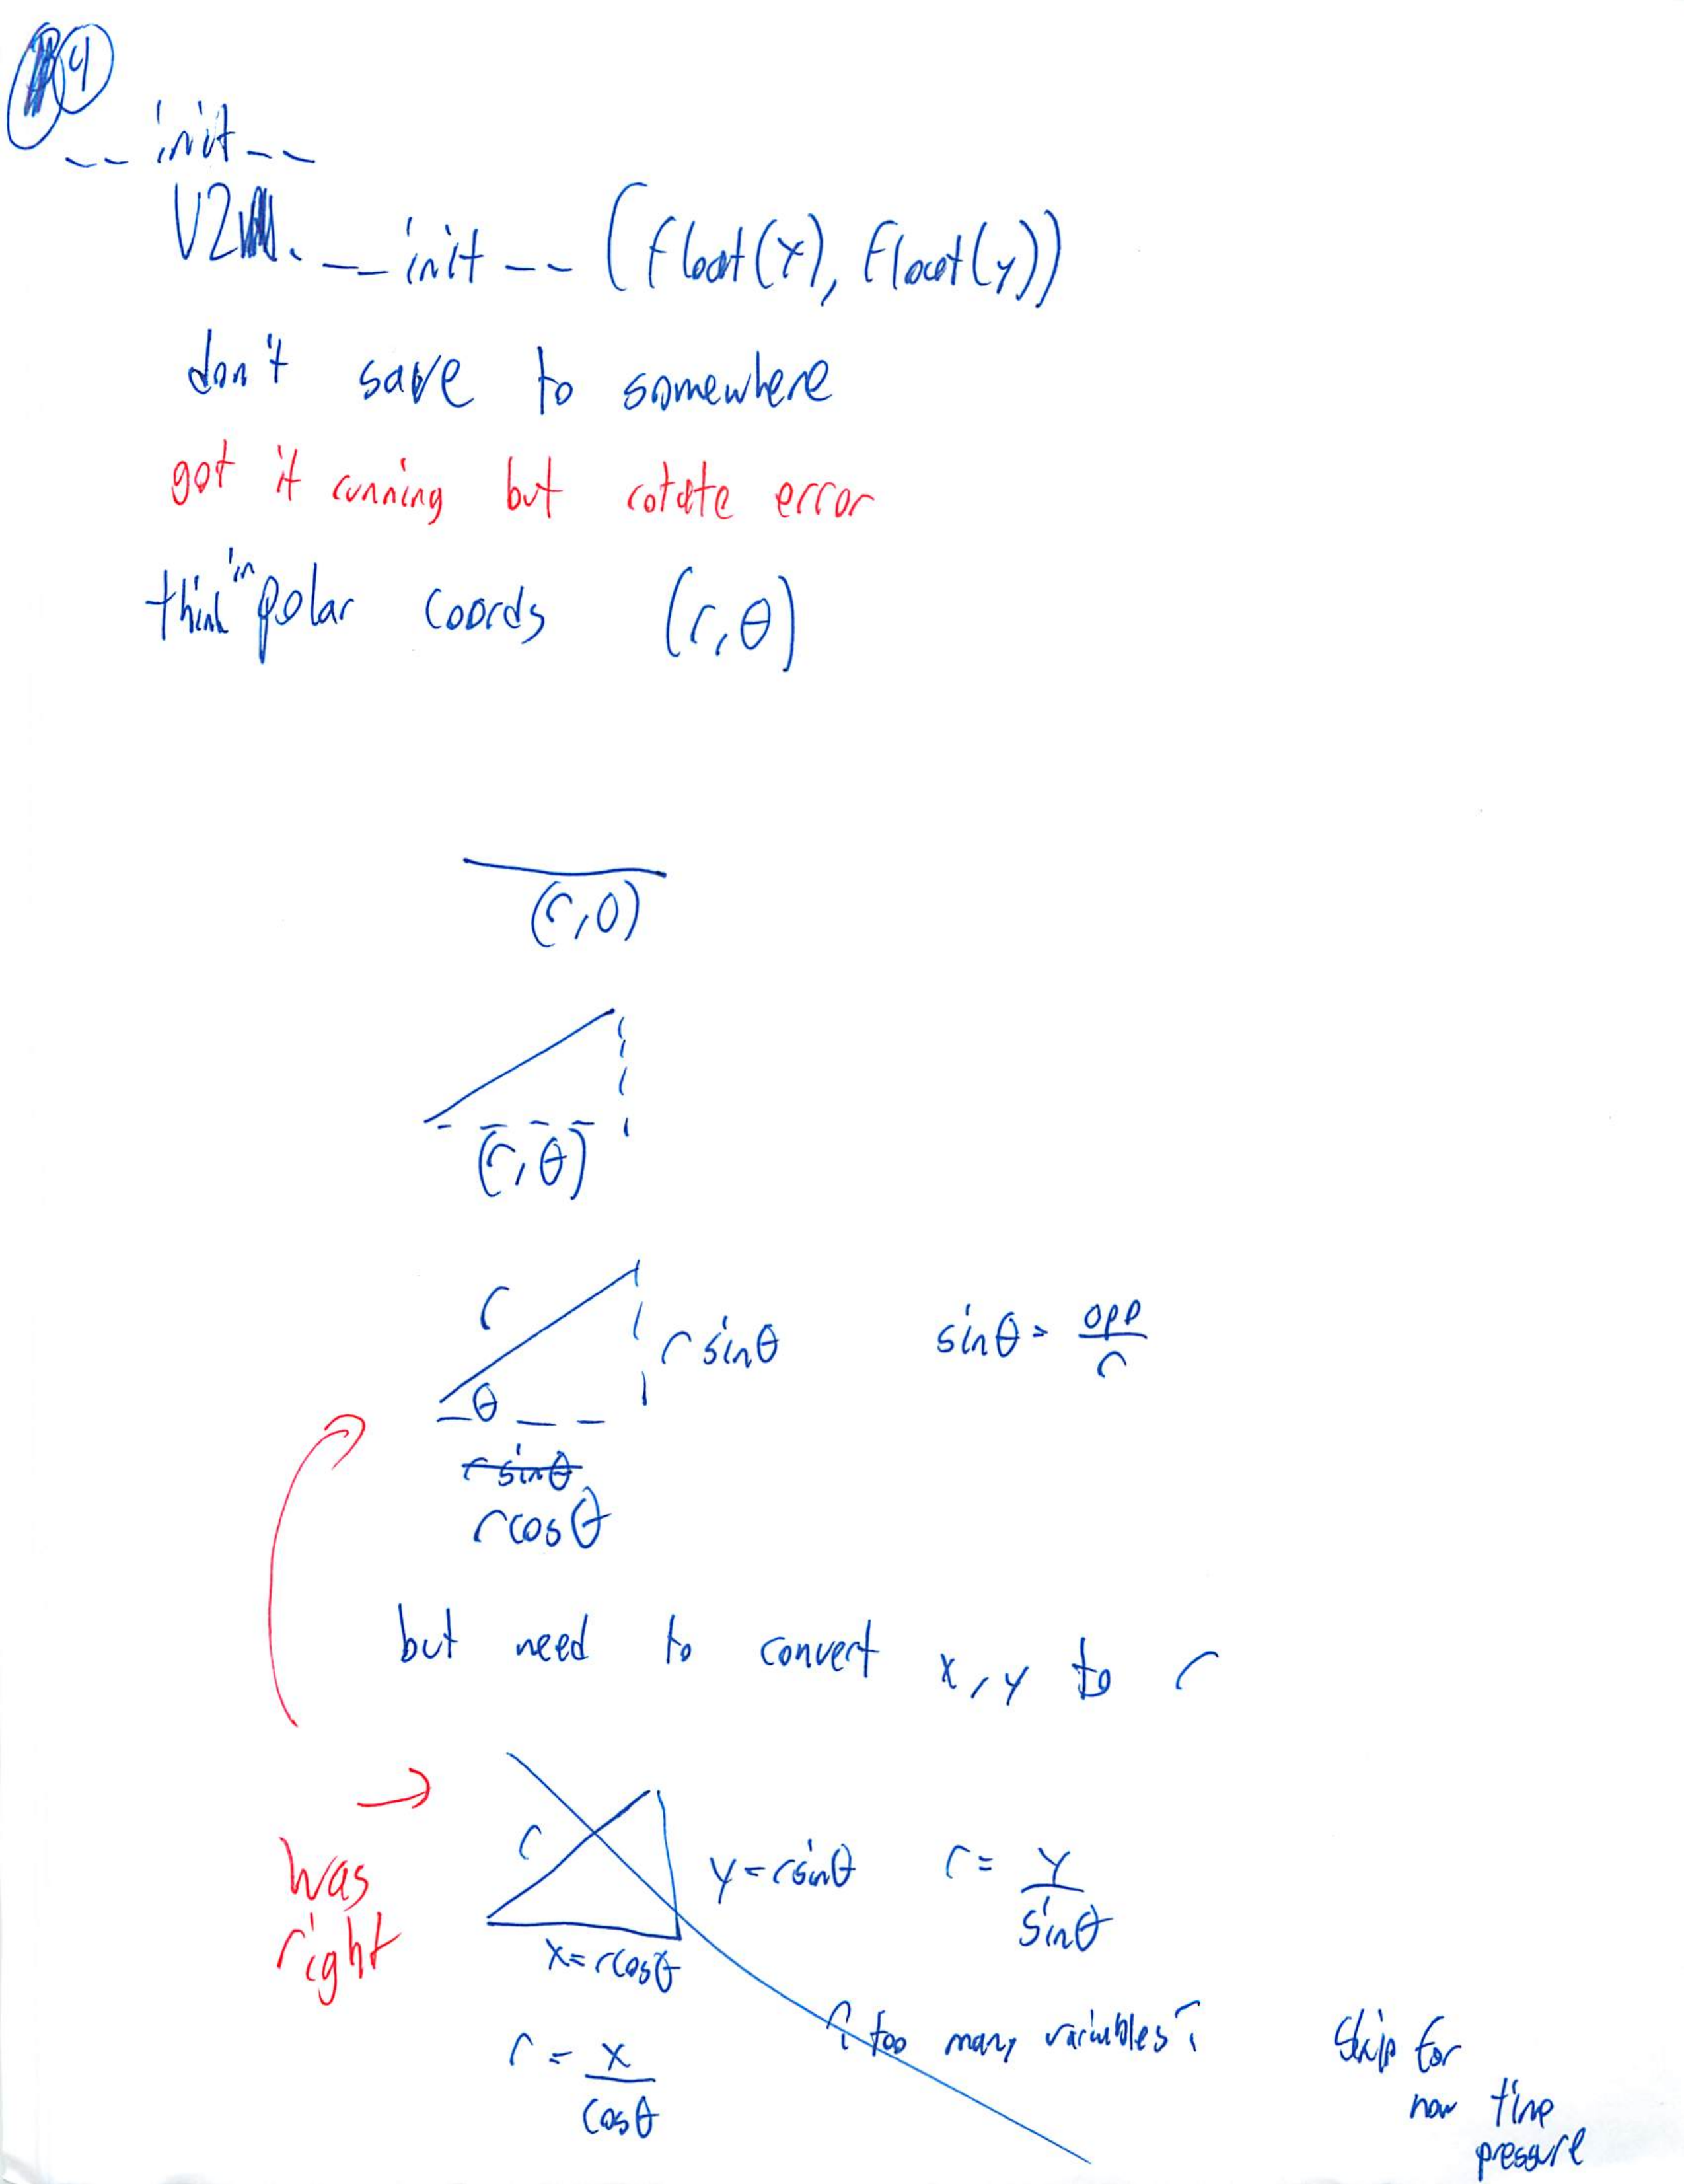 4
__init__
V2. __init__ (float(x), float(y))
don't save to somewhere
got it running but rotate error
think in polar coords (r, θ)
(r, 0)
(r, θ)
r
θ
r sinθ
sinθ = opp/r
r sinθ
r cosθ
but need to convert x, y to r
was right
r
y = r sinθ
r = y/sinθ
x = r cosθ
r = x/cosθ
too many variables
Skip for
now time
pressure